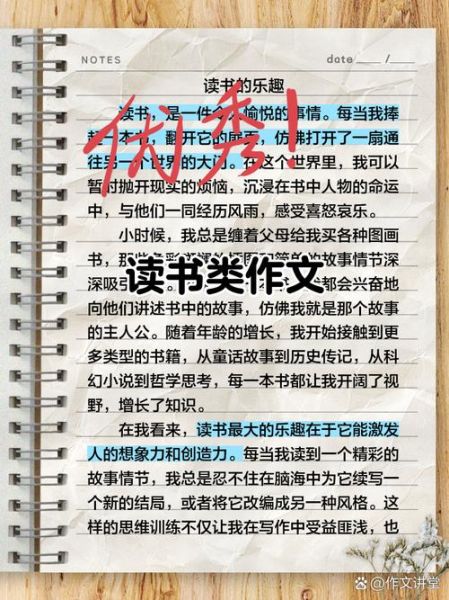 NOTES
date ____ /____
读书的乐趣
读书，是一件令人愉悦的事情。每当我捧
一本书，翻开它的，仿佛打开了一扇通
往另一个世界的大门。在这个世界里，我可以
暂时抛开现实的烦恼，沉浸在书中人物的命运
中，与他们一同经历风雨，感受喜怒哀乐。
优秀！
小时候，我总是缠着父母给我买各种图画
书，那故事情节深
读书类作文
深吸都会兴奋地
向他们讲述书中的故事，仿佛我就是那个故事
的主人公。随着年龄的增长，我开始接触到更
多类型的书籍，从童话故事到历史传记，从科
幻小说到哲学思考，每一本书都让我开阔了视
野，增长了知识。
在我看来，读书最大的乐趣在于它能激发
人的想象力和创造力。每当我读到一个精彩的
故事情节，我总是忍不住在脑海中为它续写一
个新的结局，或者将它改编成另一种风格。这
样的思维训练不仅让我在写作中受益匪浅，也
@作文讲堂